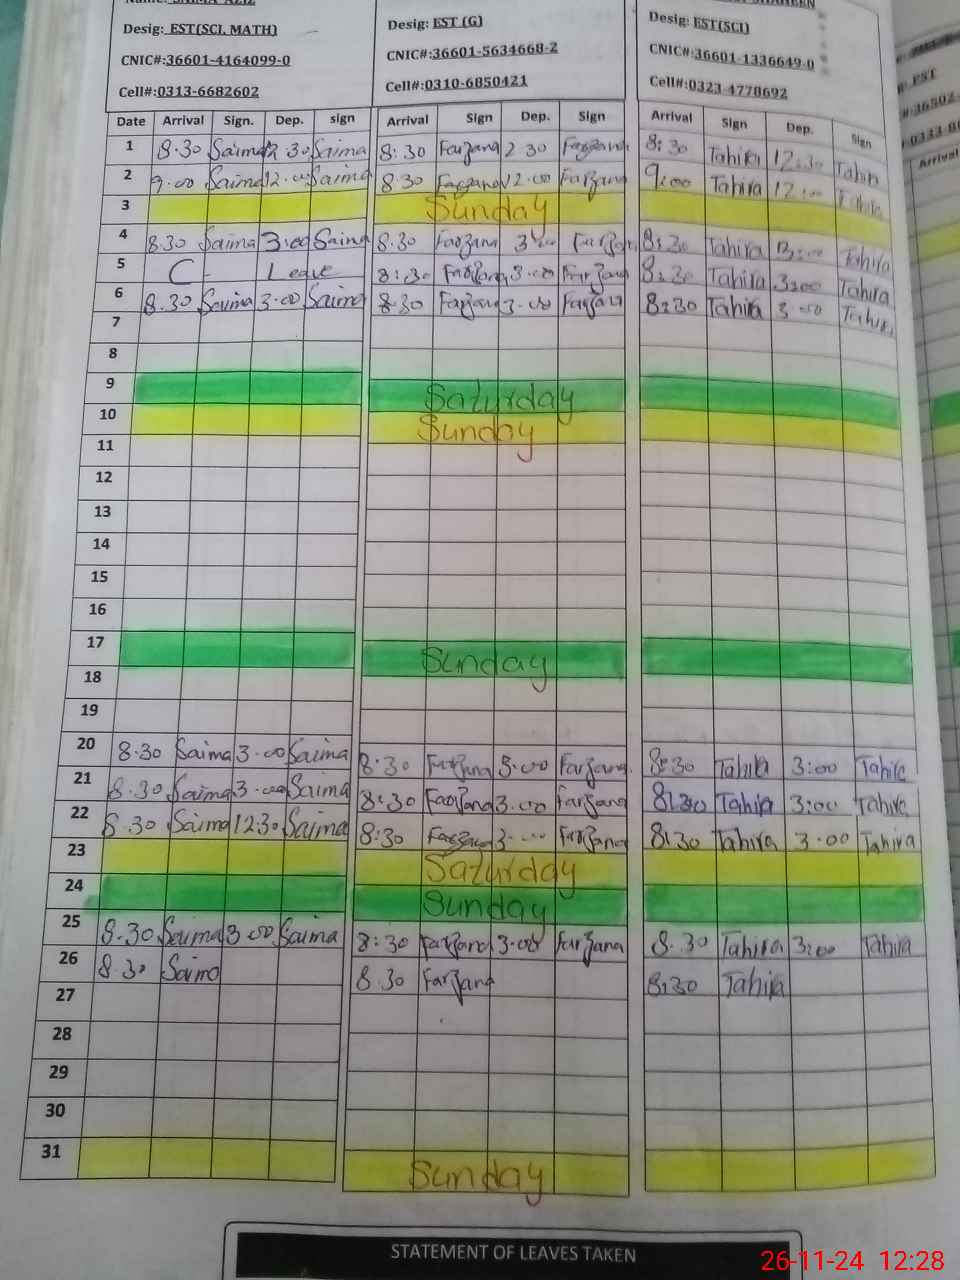 Name: SAIMA AZIZ
SHAHEEN
Desig: EST(SCI, MATH) Desig: EST (G) Desig: EST(SCI)
CNIC#:36601-4164099-0 CNIC#:36601-5634668-2 CNIC#:36601-1336649-0
Cell#:0313-6682602 Cell#:0310-6850421 Cell#:0323-4778692
Date Arrival Sign. Dep. sign Arrival Sign Dep. Sign Arrival Sign Dep. Sign Arrival
1 8.30 Saima 12.30 Saima 8:30 Farzana 2 30 Farzana 8:30 Tahira 12:30 Tahira
2 9.00 Saima 12.00 Saima 8 30 Farzana 12.00 Farzana 9:00 Tahira 12:00 Tahira
3 Sunday
4 8.30 Saima 3.00 Saima 8.30 Farzana 3.00 Farzana 8:30 Tahira 3:00 Tahira
5 C- Leave 8:30 Farzana 3.00 Farzana 8:30 Tahira 3:00 Tahira
6 8.30 Saima 3.00 Saima 8:30 Farzana 3.00 Farzana 8:30 Tahira 3.00 Tahira
7
8
9 Saturday
10 Sunday
11
12
13
14
15
16
17 Sunday
18
19
20 8.30 Saima 3.00 Saima 8.30 Farzana 3.00 Farzana. 8:30 Tahira 3:00 Tahira
21 8.30 Saima 3.00 Saima 8:30 Farzana 3.00 Farzana 8:30 Tahira 3:00 Tahira
22 8.30 Saima 12.30 Saima 8:30 Farzana 3.00 Farzana 8:30 Tahira 3.00 Tahira
23 Saturday
24 Sunday
25 8.30 Saima 3 00 Saima 8:30 Farzana 3.00 Farzana 8.30 Tahira 3:00 Tahira
26 8.30 Saima 8.30 Farzana 8:30 Tahira
27
28
29
30
31 Sunday
STATEMENT OF LEAVES TAKEN
26-11-24 12:28